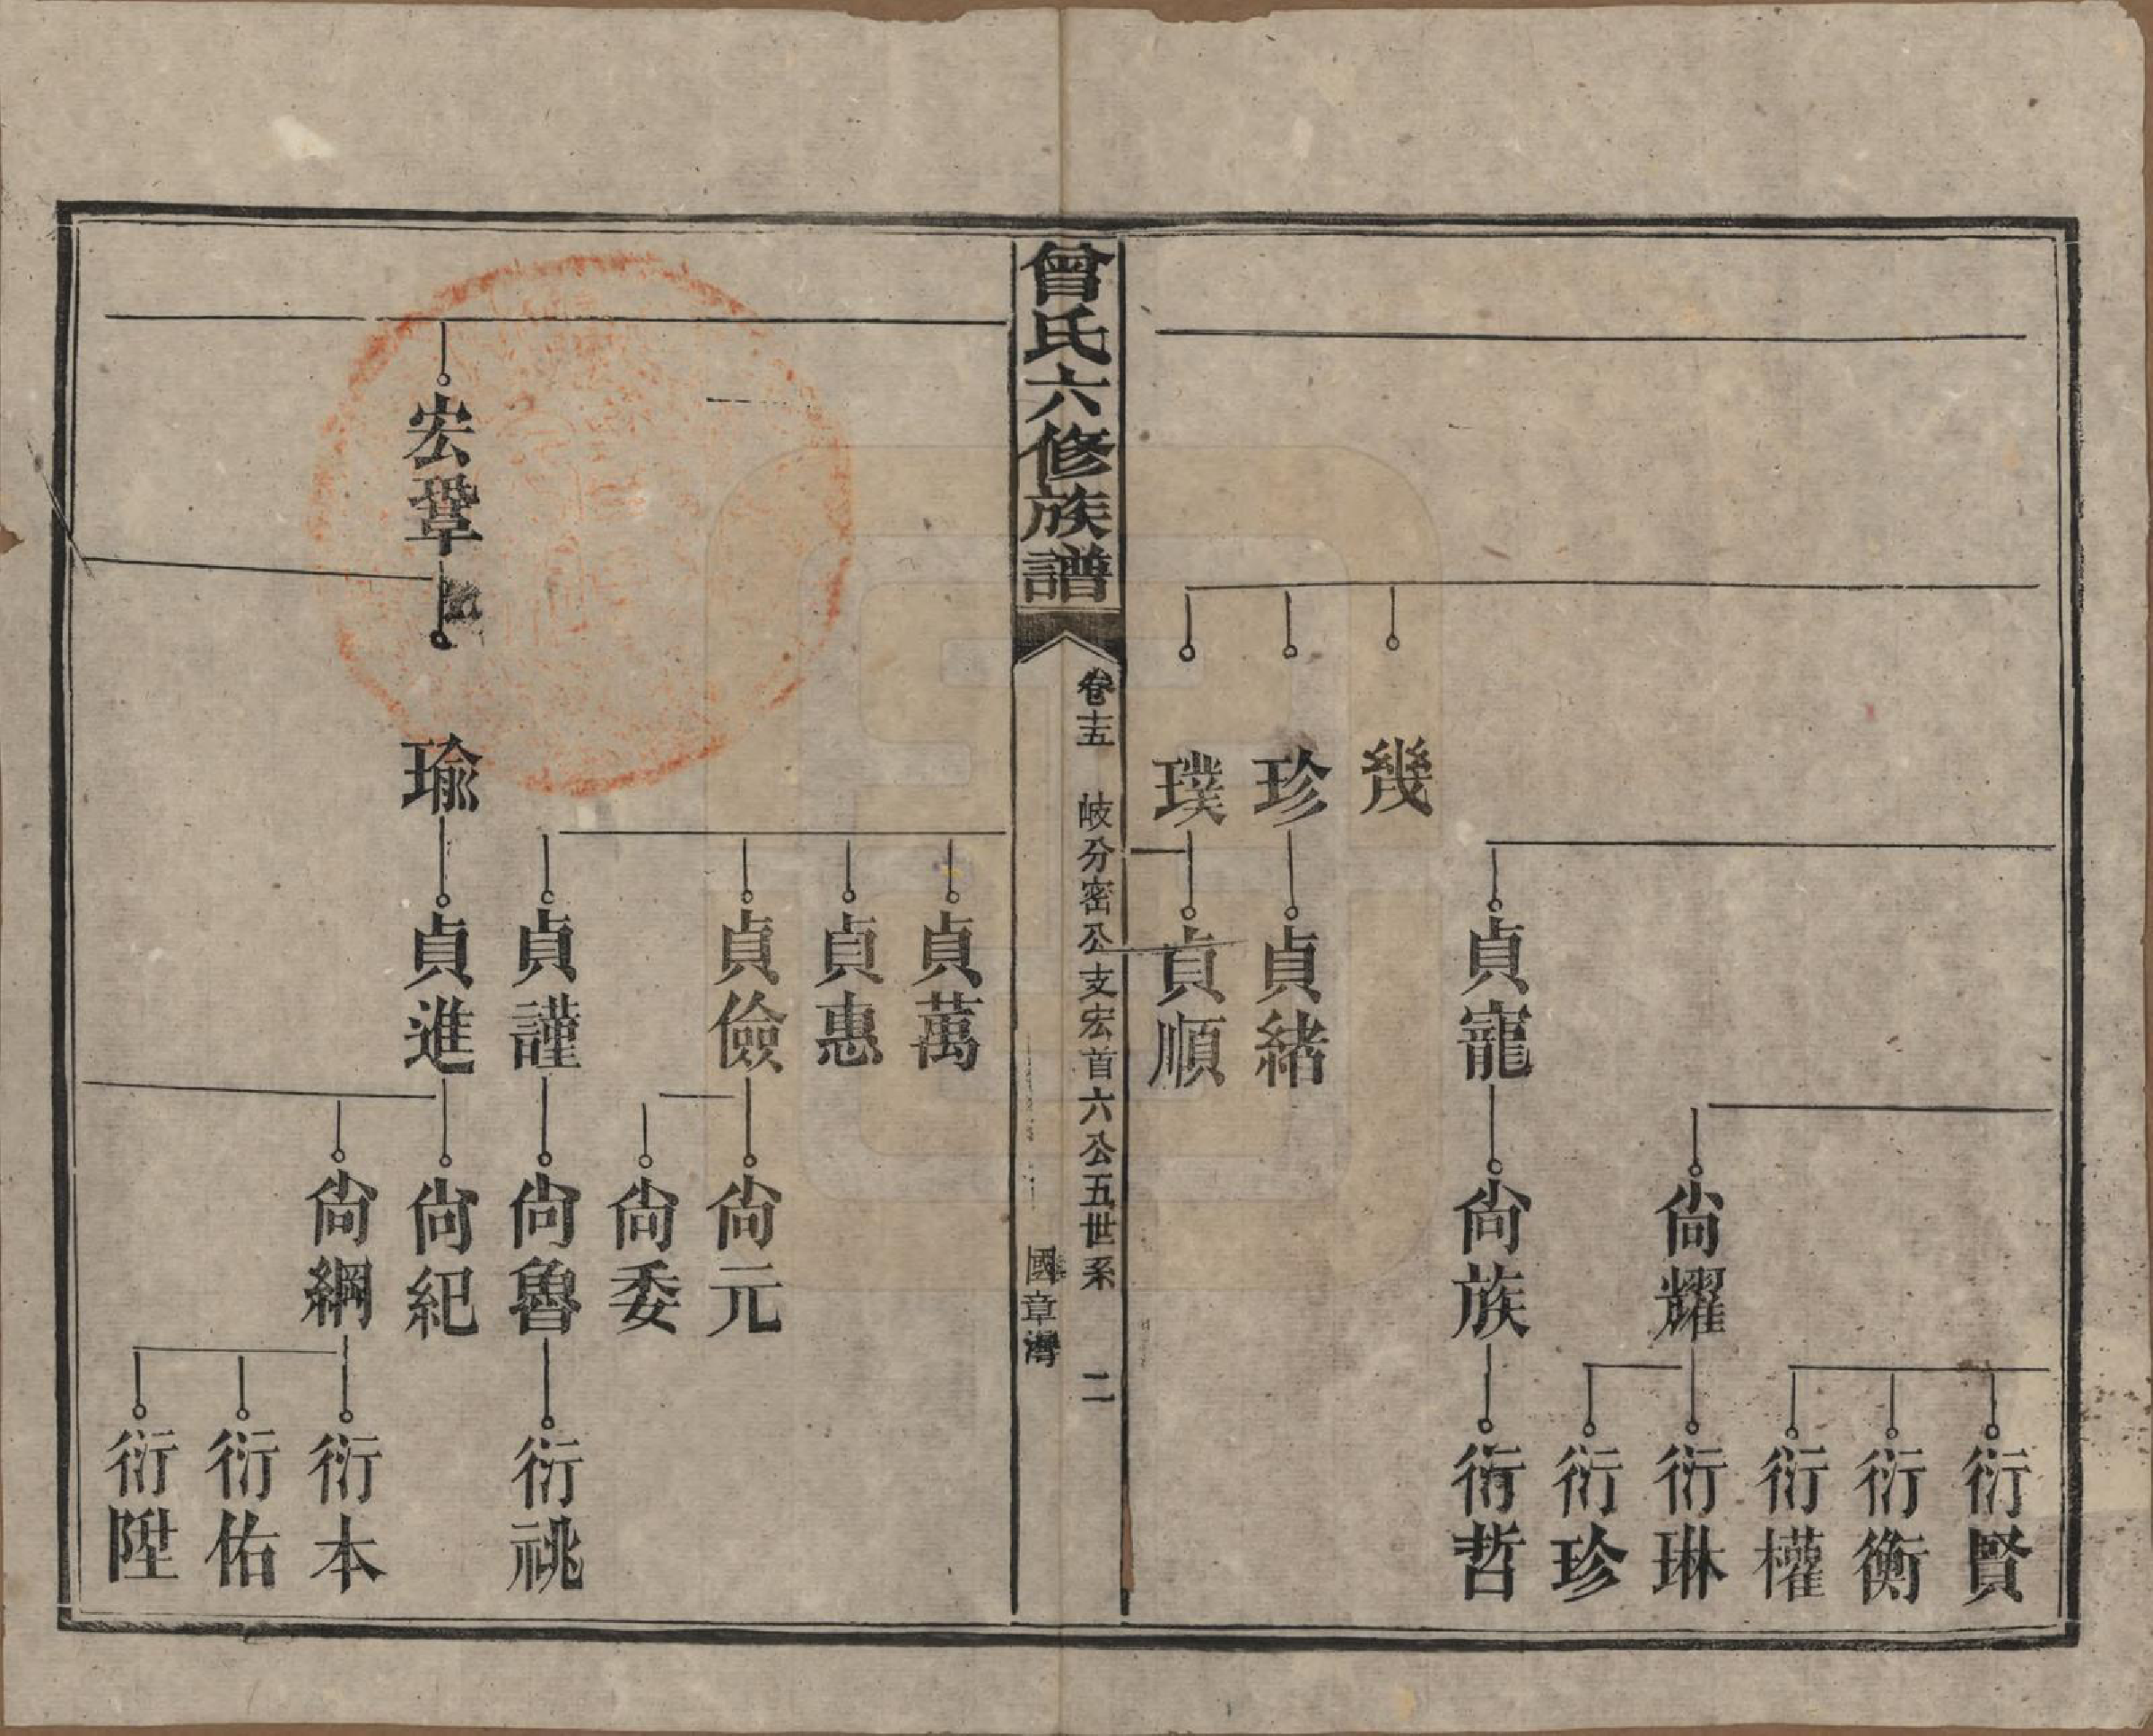 衍賢
衍衡
衍權
尙耀
衍琳
衍珍
貞寵
尙族
衍哲
幾
珍
貞緒
璞
貞順
曾氏六修族譜
卷十五
岐分密公支宏首六公五世系
二
章灣
貞萬
貞惠
貞儉
尙元
尙委
貞謹
尙魯
衍祧
宏鞏
瑜
貞進
尙紀
尙綱
衍本
衍佑
衍陞